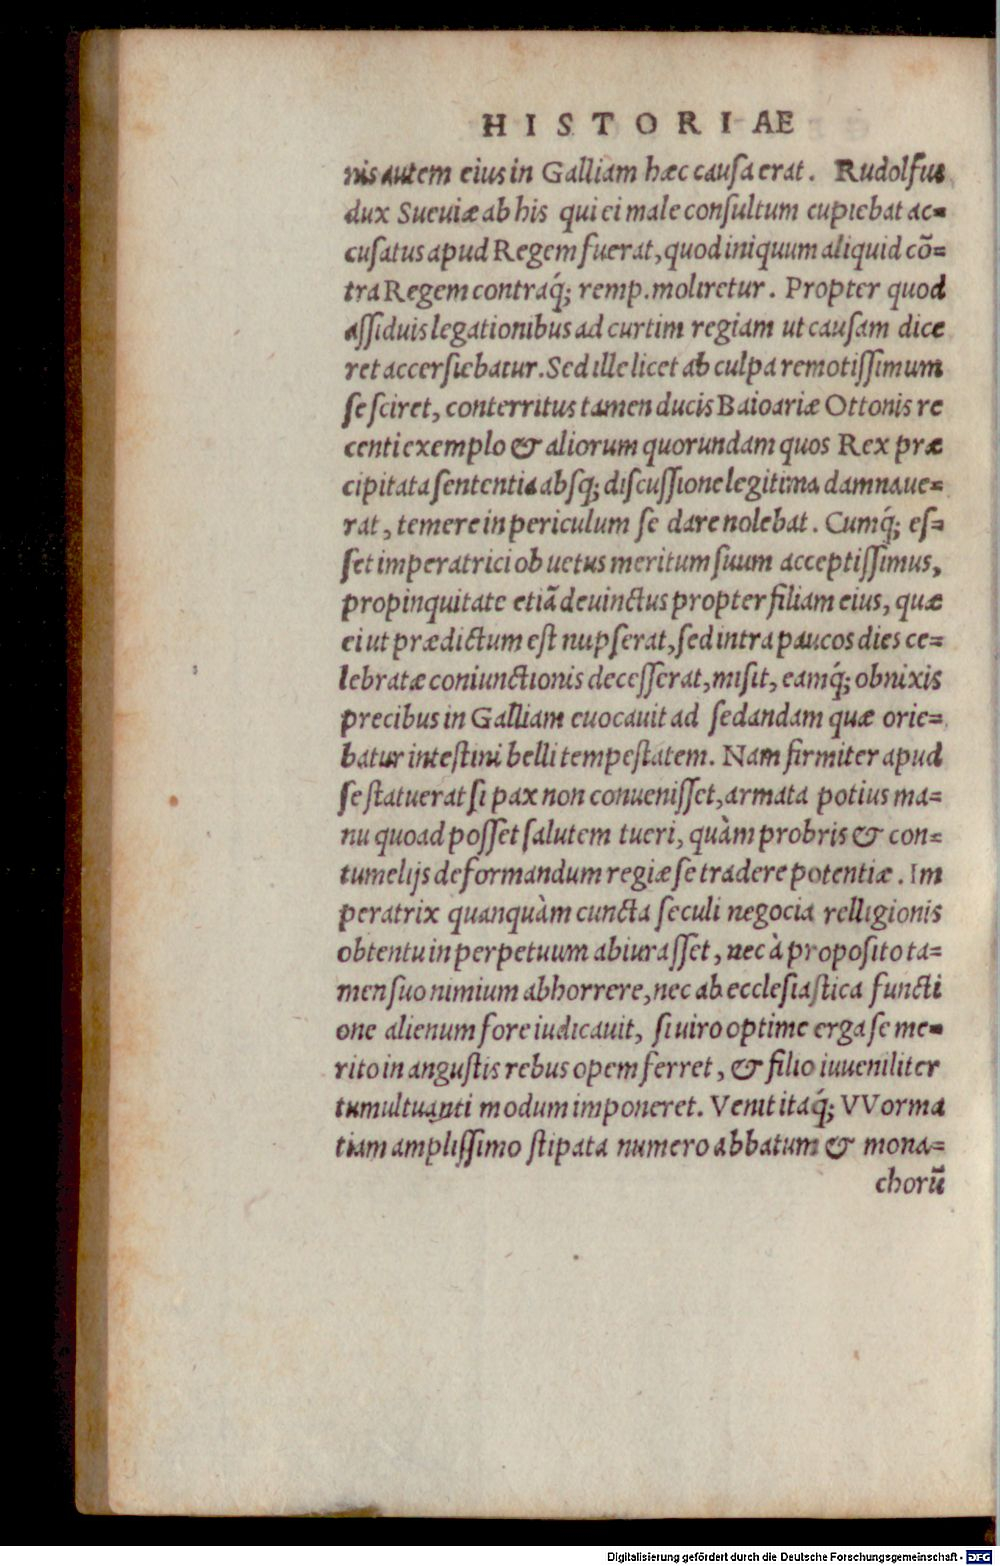 HISTORIAE
nis autem eius in Galliam hæc causa erat. Rudolfus
dux Sueuiæ ab his qui ei male consultum cupiebat ac=
cusatus apud Regem fuerat, quod iniquum aliquid cõ=
tra Regem contraq́; remp. moliretur. Propter quod
assiduis legationibus ad curtim regiam ut causam dice
ret accersiebatur. Sed ille licet ab culpa remotissimum
se sciret, conterritus tamen ducis Baioariæ Ottonis re
centi exemplo & aliorum quorundam quos Rex præ
cipitata sententia absq; discussione legitima damnaue=
rat, temere in periculum se dare nolebat. Cumq́; es=
set imperatrici ob uetus meritum suum acceptissimus,
propinquitate etiã deuinctus propter filiam eius, quæ
ei ut prædictum est nupserat, sed intra paucos dies ce=
lebratæ coniunctionis decesserat, misit, eamq́; obnixis
precibus in Galliam euocauit ad sedandam quæ orie=
batur intestini belli tempestatem. Nam firmiter apud
se statuerat si pax non conuenisset, armata potius ma=
nu quoad posset salutem tueri, quàm probris & con=
tumelijs deformandum regiæ se tradere potentiæ. Im
peratrix quanquàm cuncta seculi negocia relligionis
obtentu in perpetuum abiurasset, nec à proposito ta=
men suo nimium abhorrere, nec ab ecclesiastica functi
one alienum fore iudicauit, si uiro optime erga se me=
rito in angustis rebus opem ferret, & filio iuueniliter
tumultuanti modum imponeret. Venit itaq́; VVorma
tiam amplissimo stipata numero abbatum & mona=
chorũ
Digitalisierung gefördert durch die Deutsche Forschungsgemeinschaft - DFG